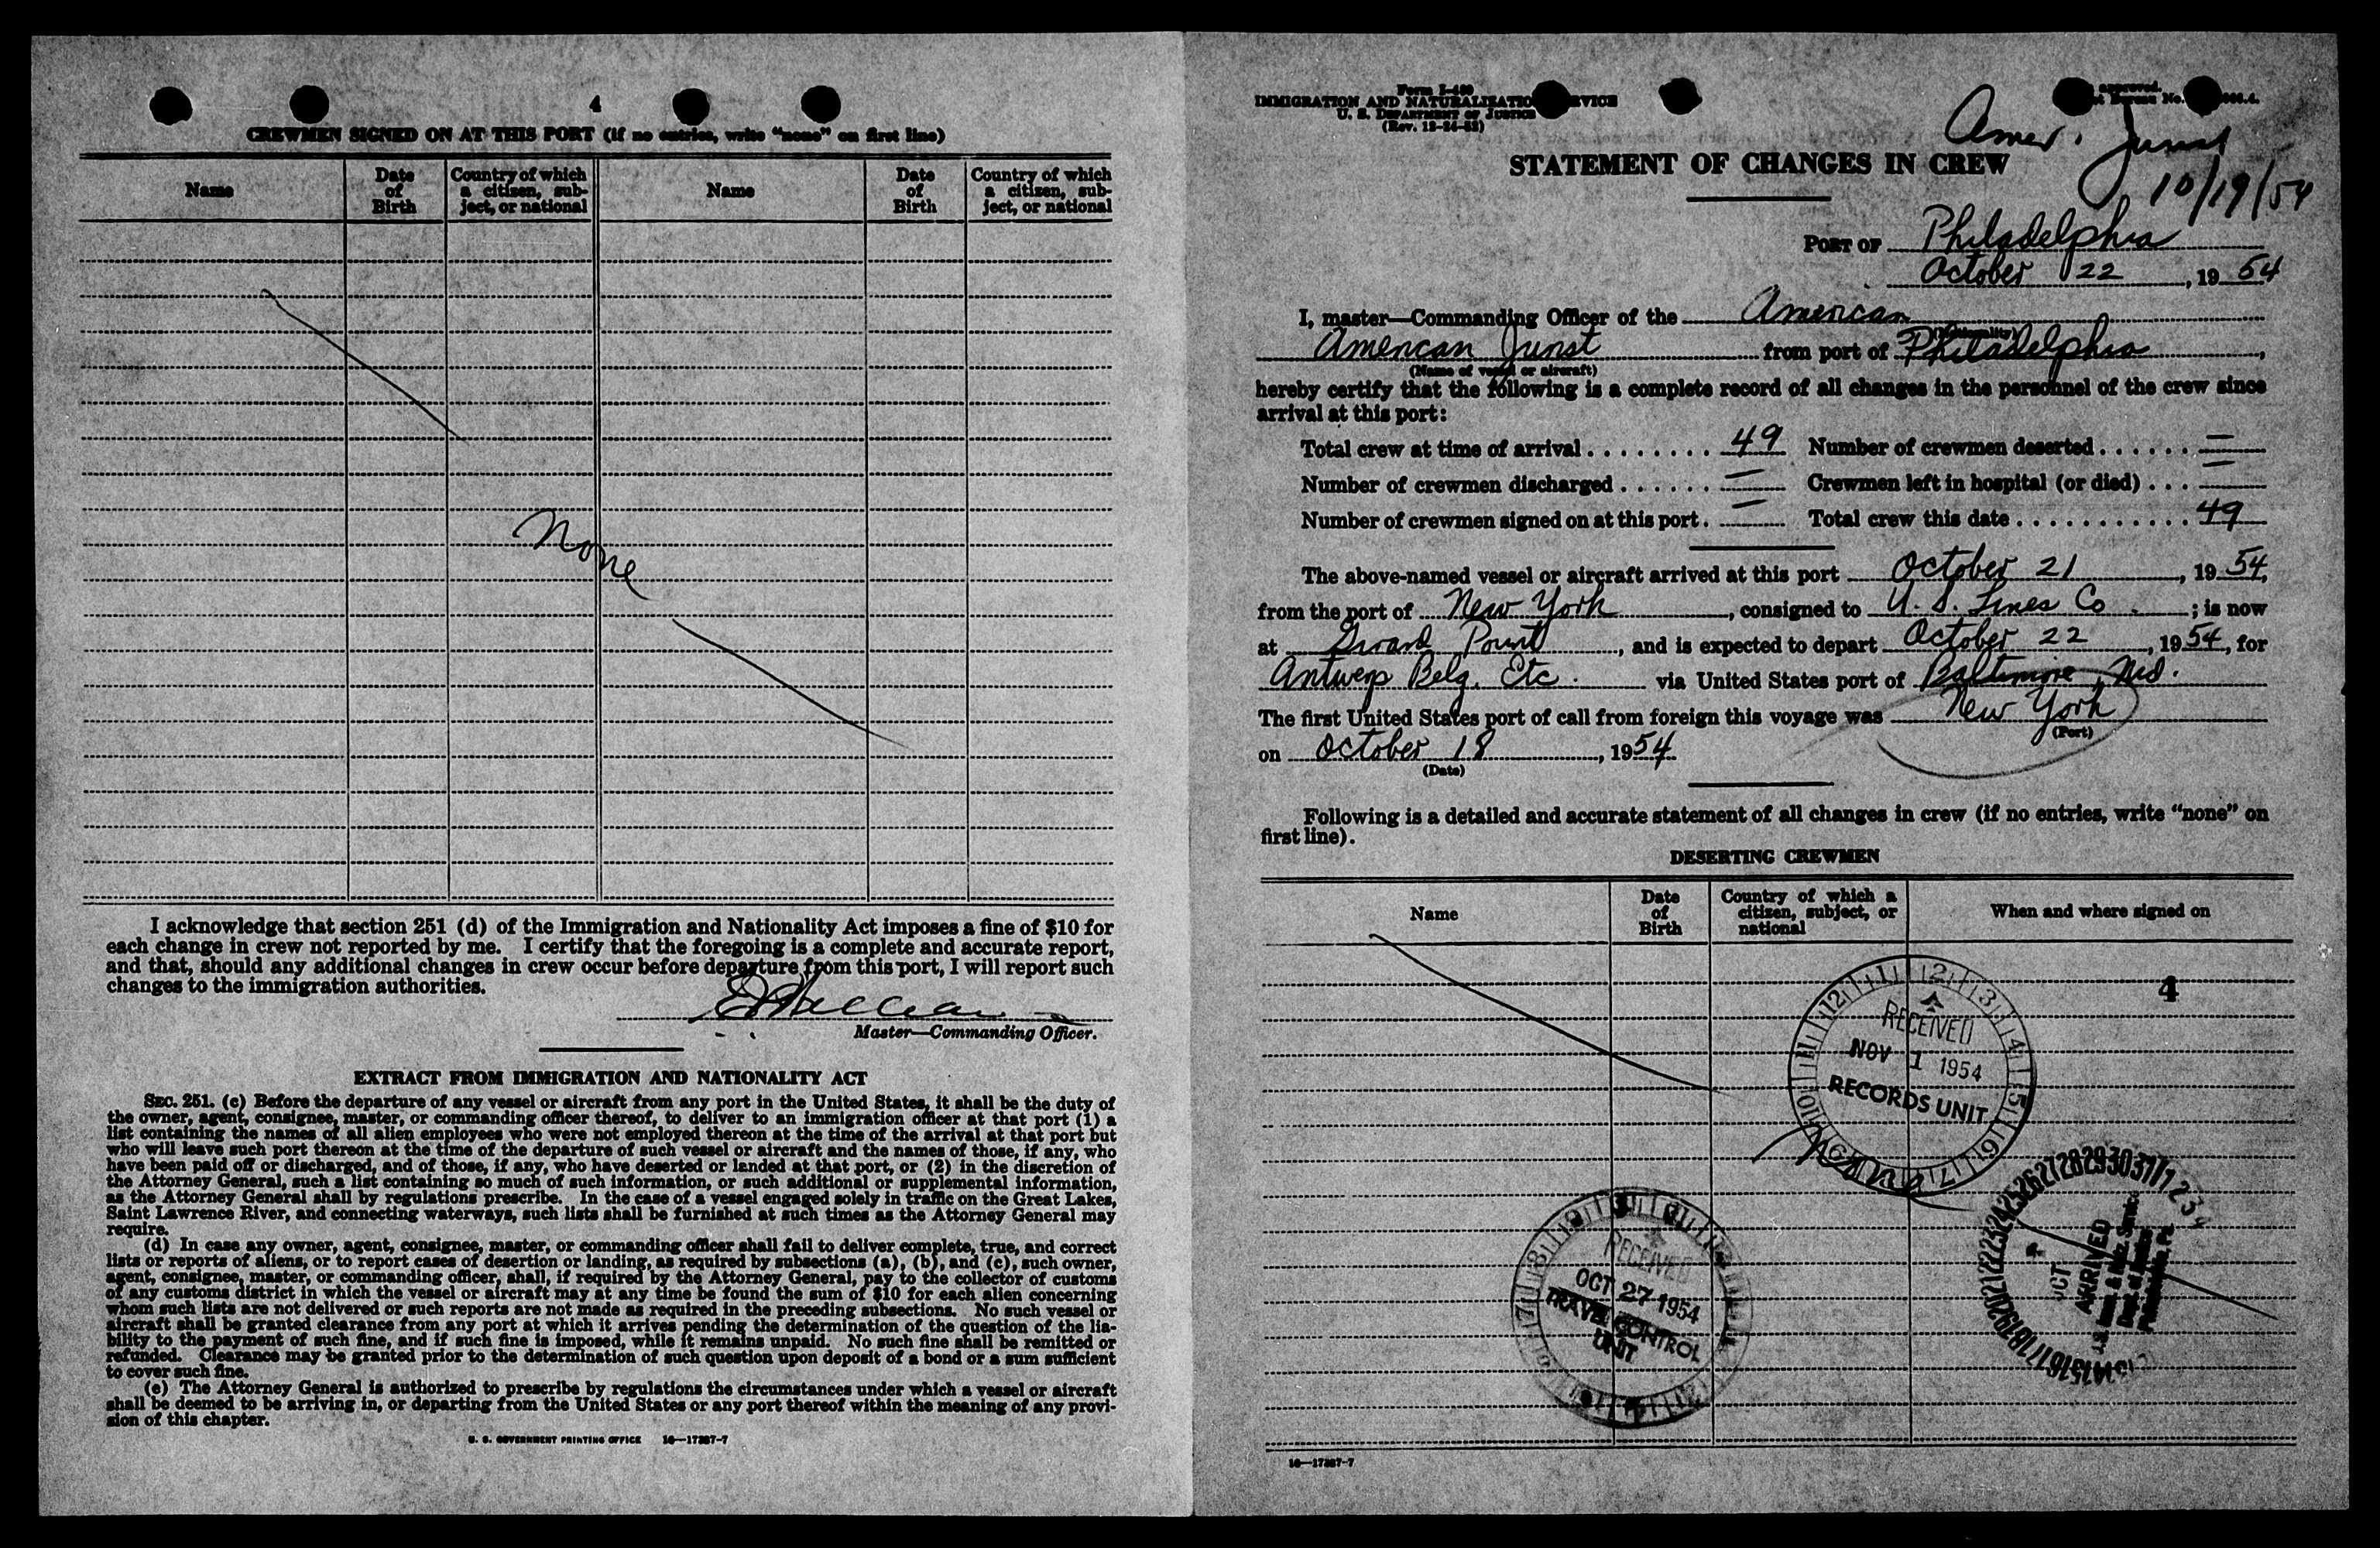 4
CREWMEN SIGNED ON AT THIS PORT (if no entries, write “none” on first line)
Name
Date of Birth
Country of which a citizen, subject, or national
Name
Date of Birth
Country of which a citizen, subject, or national
None
I acknowledge that section 251 (d) of the Immigration and Nationality Act imposes a fine of $10 for
each change in crew not reported by me. I certify that the foregoing is a complete and accurate report,
and that, should any additional changes in crew occur before departure from this port, I will report such
changes to the immigration authorities.
Master—Commanding Officer.
EXTRACT FROM IMMIGRATION AND NATIONALITY ACT
SEC. 251. (c) Before the departure of any vessel or aircraft from any port in the United States, it shall be the duty of
the owner, agent, consignee, master, or commanding officer thereof, to deliver to an immigration officer at that port (1) a
list containing the names of all alien employees who were not employed thereon at the time of the arrival at that port but
who will leave such port thereon at the time of the departure of such vessel or aircraft and the names of those, if any, who
have been paid off or discharged, and of those, if any, who have deserted or landed at that port, or (2) in the discretion of
the Attorney General, such a list containing so much of such information, or such additional or supplemental information,
as the Attorney General shall by regulations prescribe. In the case of a vessel engaged solely in traffic on the Great Lakes,
Saint Lawrence River, and connecting waterways, such lists shall be furnished at such times as the Attorney General may
require.
(d) In case any owner, agent, consignee, master, or commanding officer shall fail to deliver complete, true, and correct
lists or reports of aliens, or to report cases of desertion or landing, as required by subsections (a), (b), and (c), such owner,
agent, consignee, master, or commanding officer, shall, if required by the Attorney General, pay to the collector of customs
of any customs district in which the vessel or aircraft may at any time be found the sum of $10 for each alien concerning
whom such lists are not delivered or such reports are not made as required in the preceding subsections. No such vessel or
aircraft shall be granted clearance from any port at which it arrives pending the determination of the question of the lia-
bility to the payment of such fine, and if such fine is imposed, while it remains unpaid. No such fine shall be remitted or
refunded. Clearance may be granted prior to the determination of such question upon deposit of a bond or a sum sufficient
to cover such fine.
(e) The Attorney General is authorized to prescribe by regulations the circumstances under which a vessel or aircraft
shall be deemed to be arriving in, or departing from the United States or any port thereof within the meaning of any provi-
sion of this chapter.
U. S. GOVERNMENT PRINTING OFFICE 16—17287-7
Form I-489
IMMIGRATION AND NATURALIZATION SERVICE
U. S. DEPARTMENT OF JUSTICE
(Rev. 12-24-52)
approved.
Bureau No.
Amer. Junst
10/19/54
STATEMENT OF CHANGES IN CREW
PORT OF Philadelphia
October 22, 1954
I, master—Commanding Officer of the American
(Nationality)
American Junst from port of Philadelphia,
(Name of vessel or aircraft)
hereby certify that the following is a complete record of all changes in the personnel of the crew since
arrival at this port:
Total crew at time of arrival . . . . . . . . 49 Number of crewmen deserted . . . . . . —
Number of crewmen discharged . . . . . . — Crewmen left in hospital (or died) . . . —
Number of crewmen signed on at this port . — Total crew this date . . . . . . . . . . . 49
The above-named vessel or aircraft arrived at this port October 21, 1954,
from the port of New York, consigned to U. S. Lines Co.; is now
at Girard Point, and is expected to depart October 22, 1954, for
Antwerp Belg. Etc. via United States port of Baltimore, Md.
The first United States port of call from foreign this voyage was New York
(Port)
on October 18, 1954
(Date)
Following is a detailed and accurate statement of all changes in crew (if no entries, write “none” on
first line).
DESERTING CREWMEN
Name
Date of Birth
Country of which a citizen, subject, or national
When and where signed on
4
RECEIVED
NOV 1 1954
RECORDS UNIT
None
RECEIVED
OCT 27 1954
TRAVEL CONTROL
UNIT
OCT
ARRIVED
Philadelphia, Pa.
16—17287-7